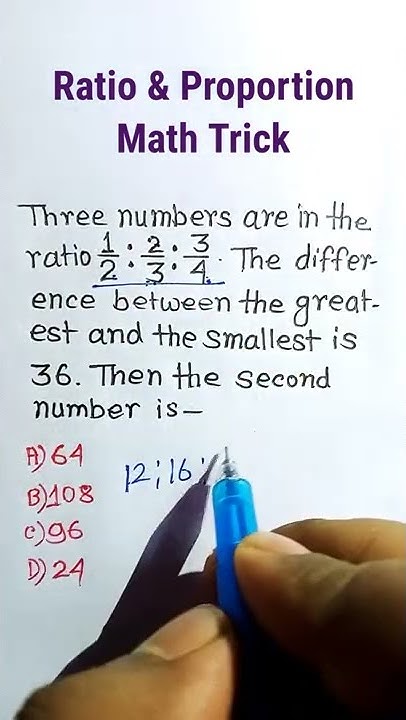 Ratio & Proportion
Math Trick
Three numbers are in the
ratio 1/2 : 2/3 : 3/4. The differ-
ence between the great-
est and the smallest is
36. Then the second
number is—
A) 64
B) 108
C) 96
D) 24
12 : 16 :